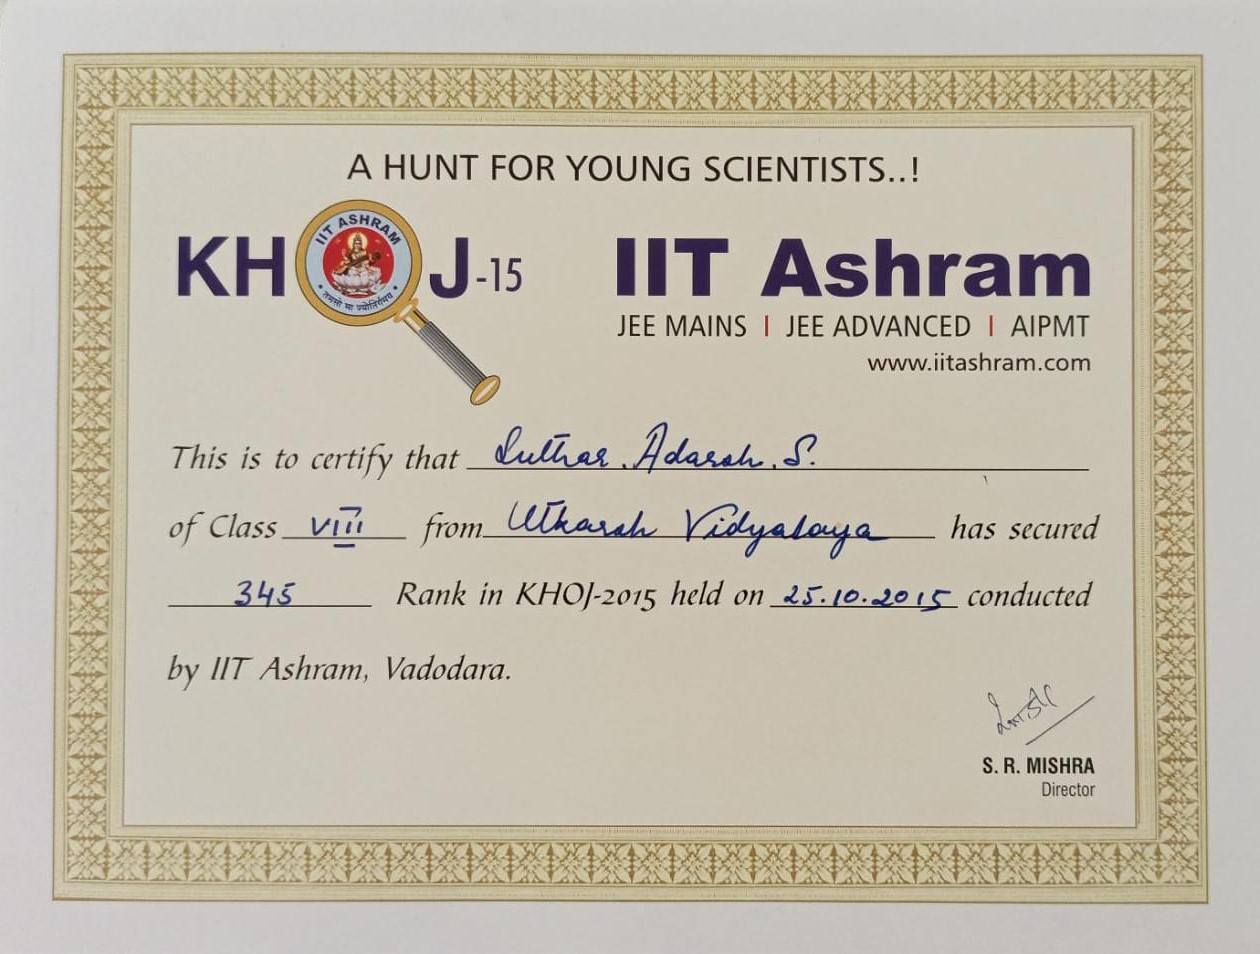 A HUNT FOR YOUNG SCIENTISTS..!
KHOJ-15
IIT ASHRAM
तमसो मा ज्योतिर्गमय
IIT Ashram
JEE MAINS | JEE ADVANCED | AIPMT
www.iitashram.com
This is to certify that Suthar Adarsh. S.
of Class VIII from Utkarsh Vidyalaya has secured
345 Rank in KHOJ-2015 held on 25.10.2015 conducted
by IIT Ashram, Vadodara.
S. R. MISHRA
Director